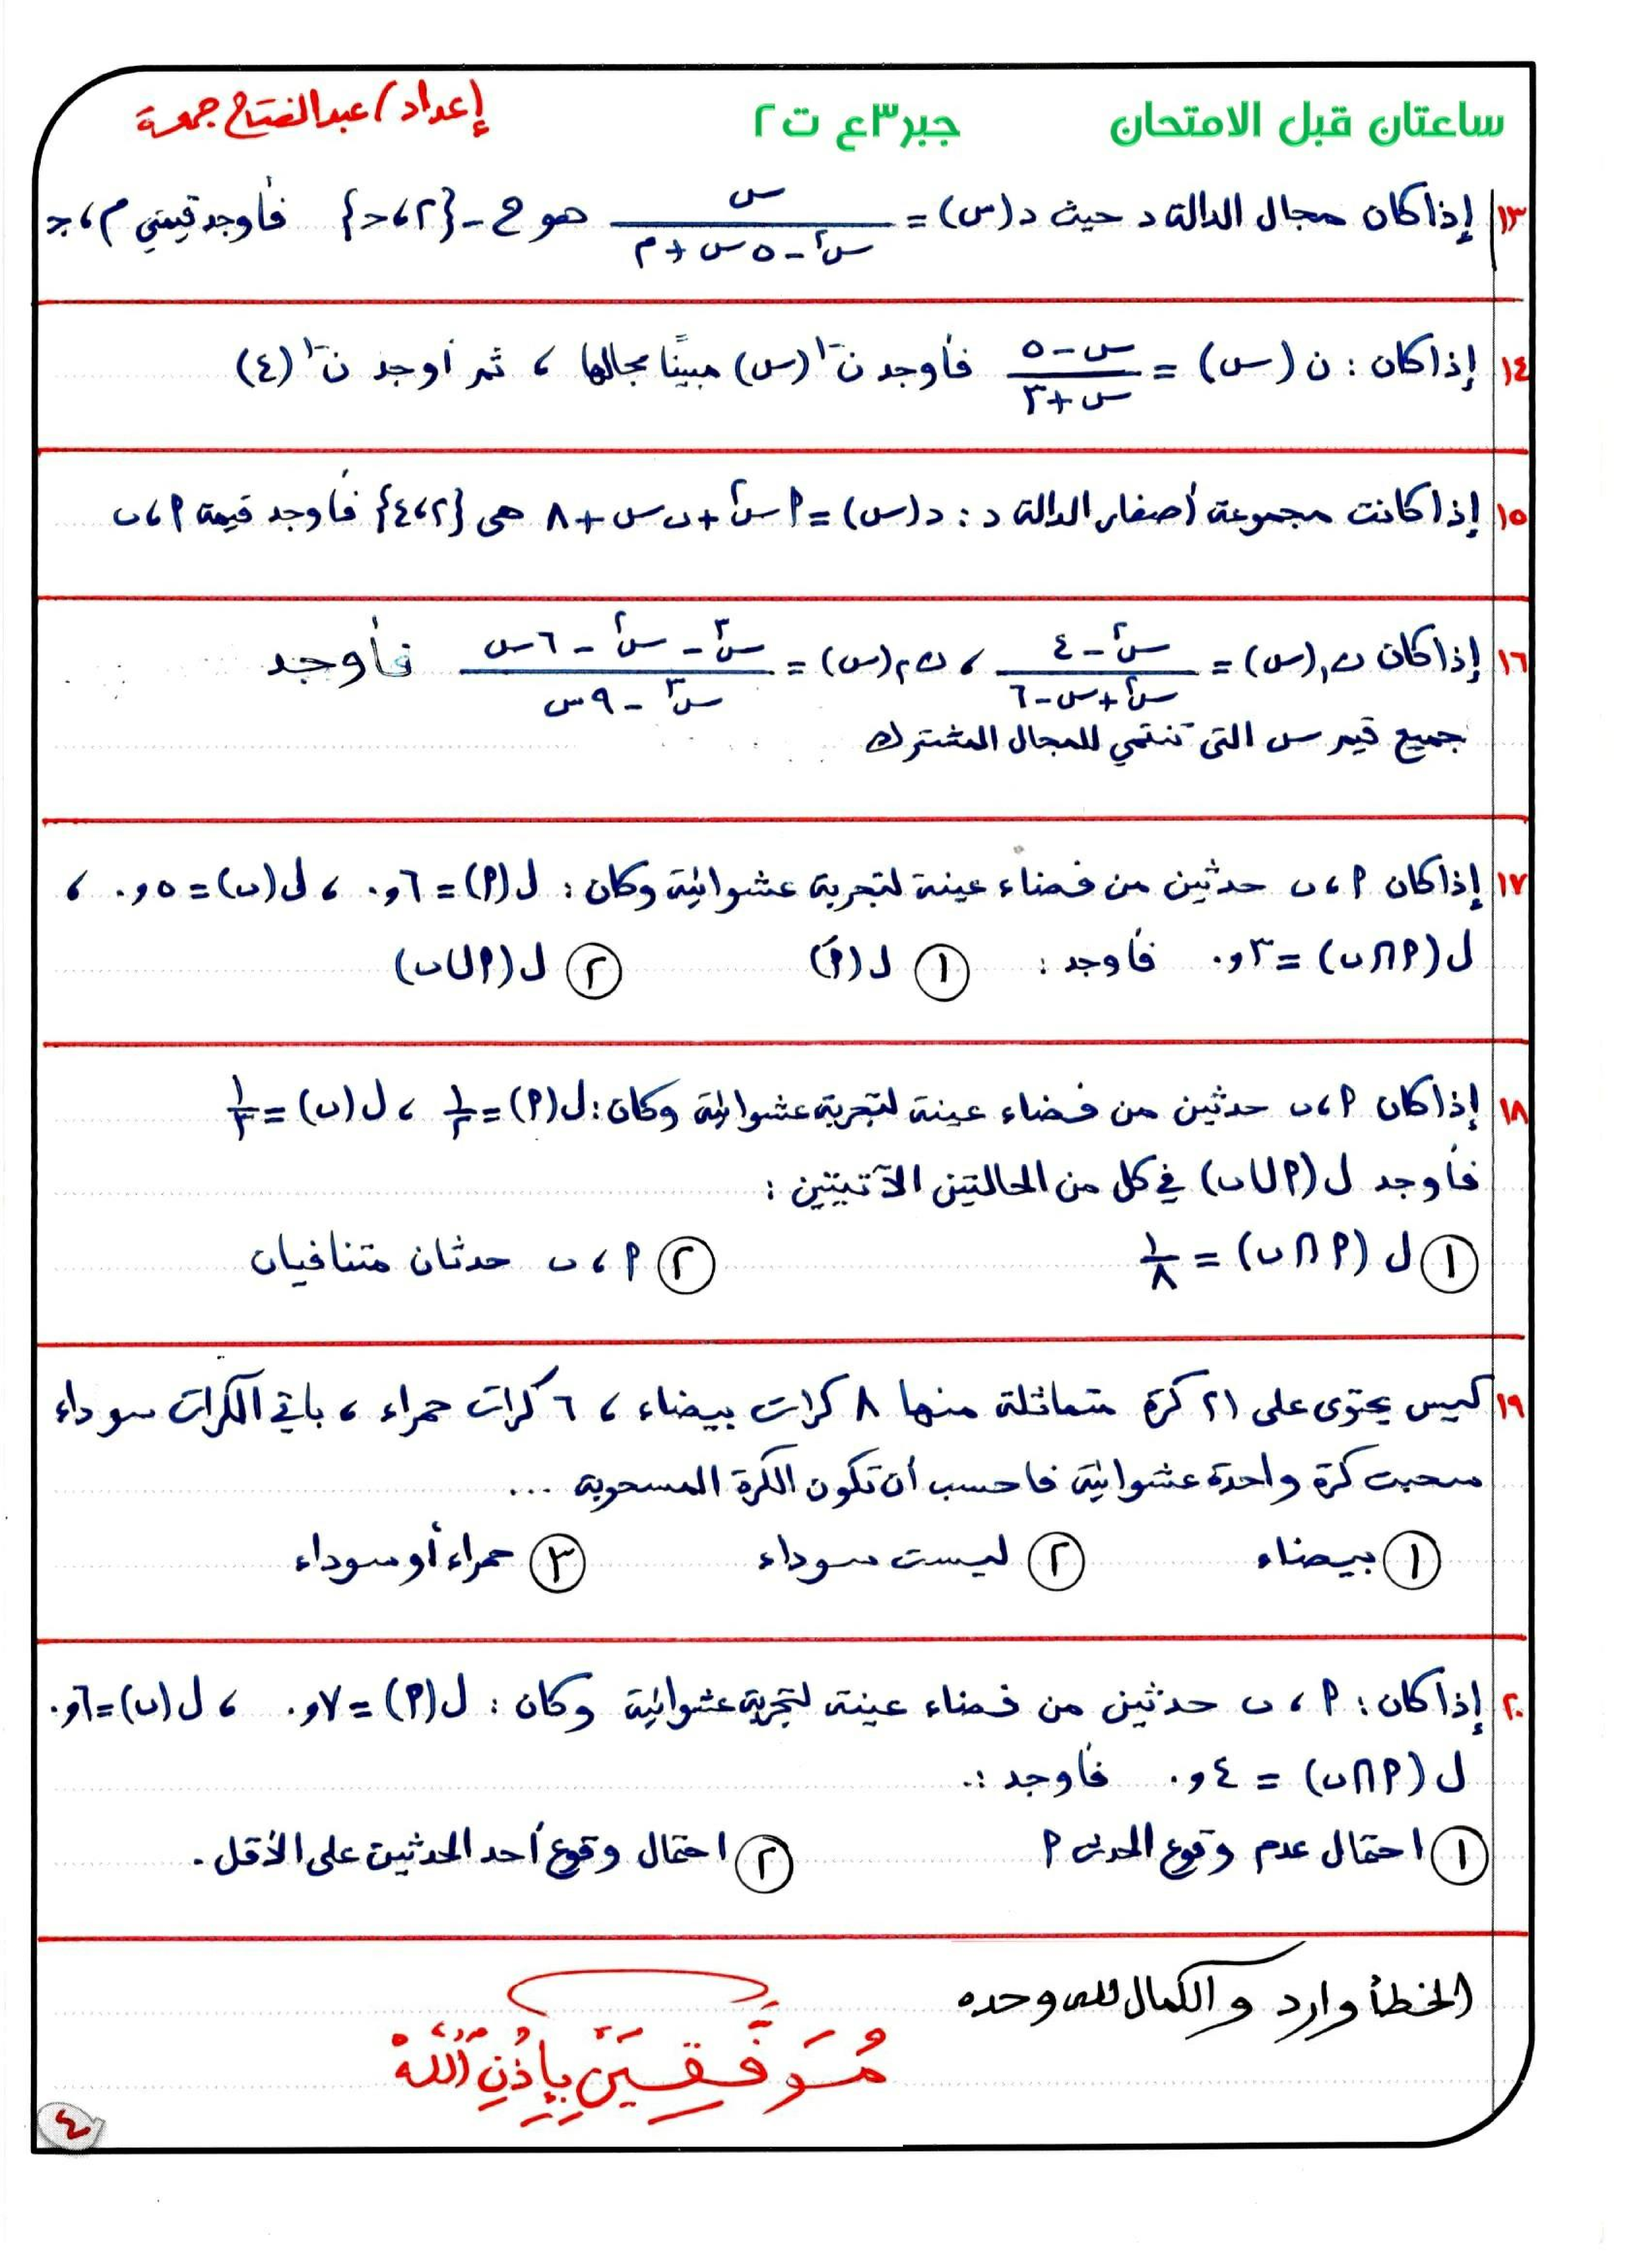 ساعتان قبل الامتحان جبر ٣ع ت٢ إعداد/ عبدالفتاح جمعة
١٣ إذا كان مجال الدالة د حيث د(س) = س / (س² - ٥س + م) هو ح - {٢، جـ} فأوجد قيمتي م، جـ
١٤ إذا كان : ن (س) = (س - ٥) / (س + ٣) فأوجد ن⁻¹(س) مبينًا مجالها ، ثم أوجد ن⁻¹(٤)
١٥ إذا كانت مجموعة أصفار الدالة د : د(س) = ﺍس² + ﺏس + ٨ هى {٢، ٤} فأوجد قيمة ﺍ، ﺏ
١٦ إذا كان ن₁(س) = (س² - ٤) / (س² + س - ٦) ، ن₂(س) = (س³ - س² - ٦س) / (س³ - ٩س) فأوجد
جميع قيم س التى تنتمي للمجال المشترك
١٧ إذا كان ﺍ، ﺏ حدثين من فضاء عينة لتجربة عشوائية وكان : ل(ﺍ) = ٠٫٦ ، ل(ﺏ) = ٠٫٥ ،
ل(ﺍ∩ﺏ) = ٠٫٣ فأوجد : ① ل(ﺍَ) ② ل(ﺍ∪ﺏ)
١٨ إذا كان ﺍ، ﺏ حدثين من فضاء عينة لتجربة عشوائية وكان : ل(ﺍ) = ١/٢ ، ل(ﺏ) = ١/٣
فأوجد ل(ﺍ∪ﺏ) في كل من الحالتين الآتيتين :
① ل(ﺍ∩ﺏ) = ١/٨ ② ﺍ، ﺏ حدثان متنافيان
١٩ كيس يحتوى على ٢١ كرة متماثلة منها ٨ كرات بيضاء ، ٦ كرات حمراء ، باقي الكرات سوداء
سحبت كرة واحدة عشوائية فاحسب أن تكون الكرة المسحوبة ...
① بيضاء ② ليست سوداء ③ حمراء أو سوداء
٢٠ إذا كان : ﺍ، ﺏ حدثين من فضاء عينة لتجربة عشوائية وكان : ل(ﺍ) = ٠٫٧ ، ل(ﺏ) = ٠٫٦
ل(ﺍ∩ﺏ) = ٠٫٤ فأوجد :.
① احتمال عدم وقوع الحدث ﺍ ② احتمال وقوع أحد الحدثين على الأقل .
الخطأ وارد والكمال لله وحده
مُوَفَّقِينَ بِإِذْنِ اللَّهِ
٤